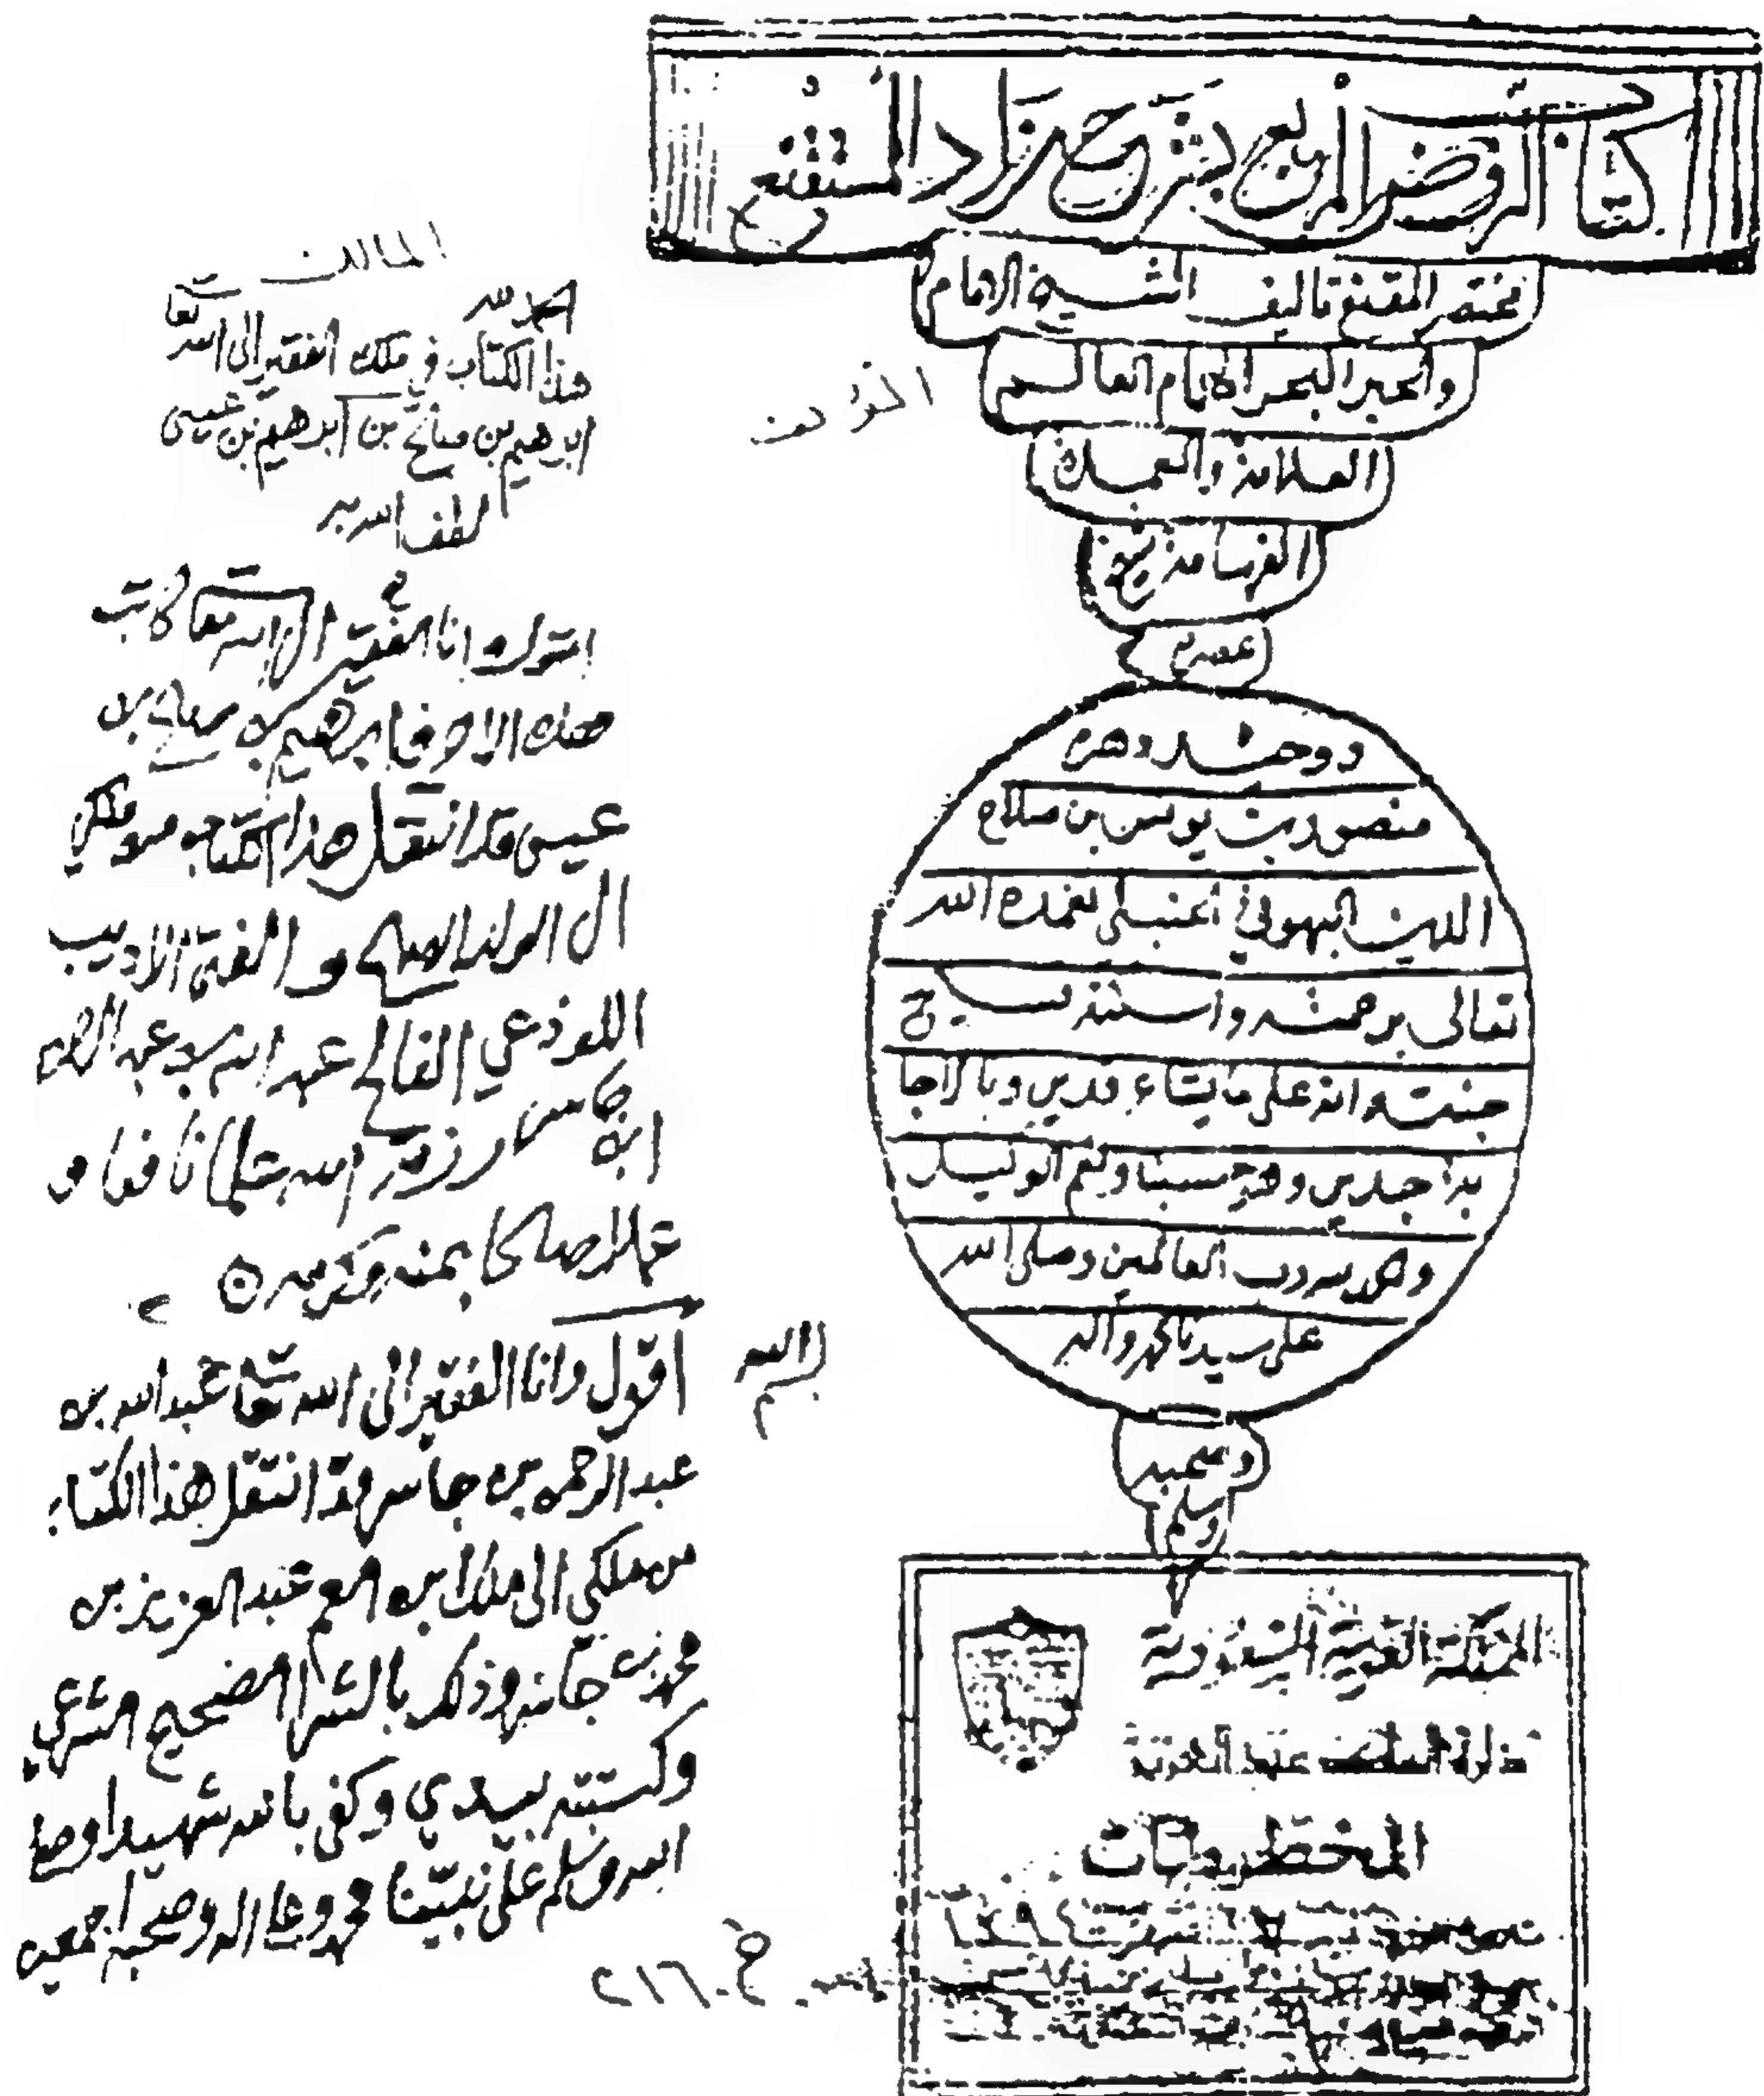 كتاب الروض المربع بشرح زاد المستقنع
مختصر المقنع تاليف الشيخ الامام
والحبر البحر الامام العالم
العلامة والعمدة
الفهامة شيخ
عصره
ووحيد دهره
منصور بن يونس بن صلاح
الدين البهوتي الحنبلي تغمده الله
تعالى برحمته واسكنه فسيح
جنته انه على ما يشاء قدير وبالاجا
بة جدير وهو حسبنا ونعم الوكيل
والحمد لله رب العالمين وصلى الله
على سيدنا محمد واله
وصحبه
وسلم
المالك
الحمد لله
هذا الكتاب في ملك الفقير الى الله تعا
ابرهيم بن صالح بن ابرهيم بن عيسى
لطف الله به
اقول وانا الفقير الى الله تعا كاتب
هذه الاحرف ابرهيم بن صالح بن
عيسى قد انتقل هذا الكتاب من ملكي
الى الولد الصالح والفتى الاديب
اللوذعي الفالح عبد الله بن عبد الرحمن
ابن جاسر رزقه الله علما نافعا و
عملا صالحا بمنه وكرمه
بسم الله
اقول وانا الفقير الى الله تعا عبد الله بن
عبد الرحمن بن جاسر قد انتقل هذا الكتاب
من ملكي الى ملك ابن العم عبد العزيز بن
محمد بن جاسر وذلك بالشرا الصحيح الشرعي
وكتبته بيدي وكفى بالله شهيدا وصلى
الله وسلم على نبينا محمد وعلى اله وصحبه اجمعين
المملكة العربية السعودية
دارة الملك عبد العزيز
المخطوطات
خ. ٢١٦